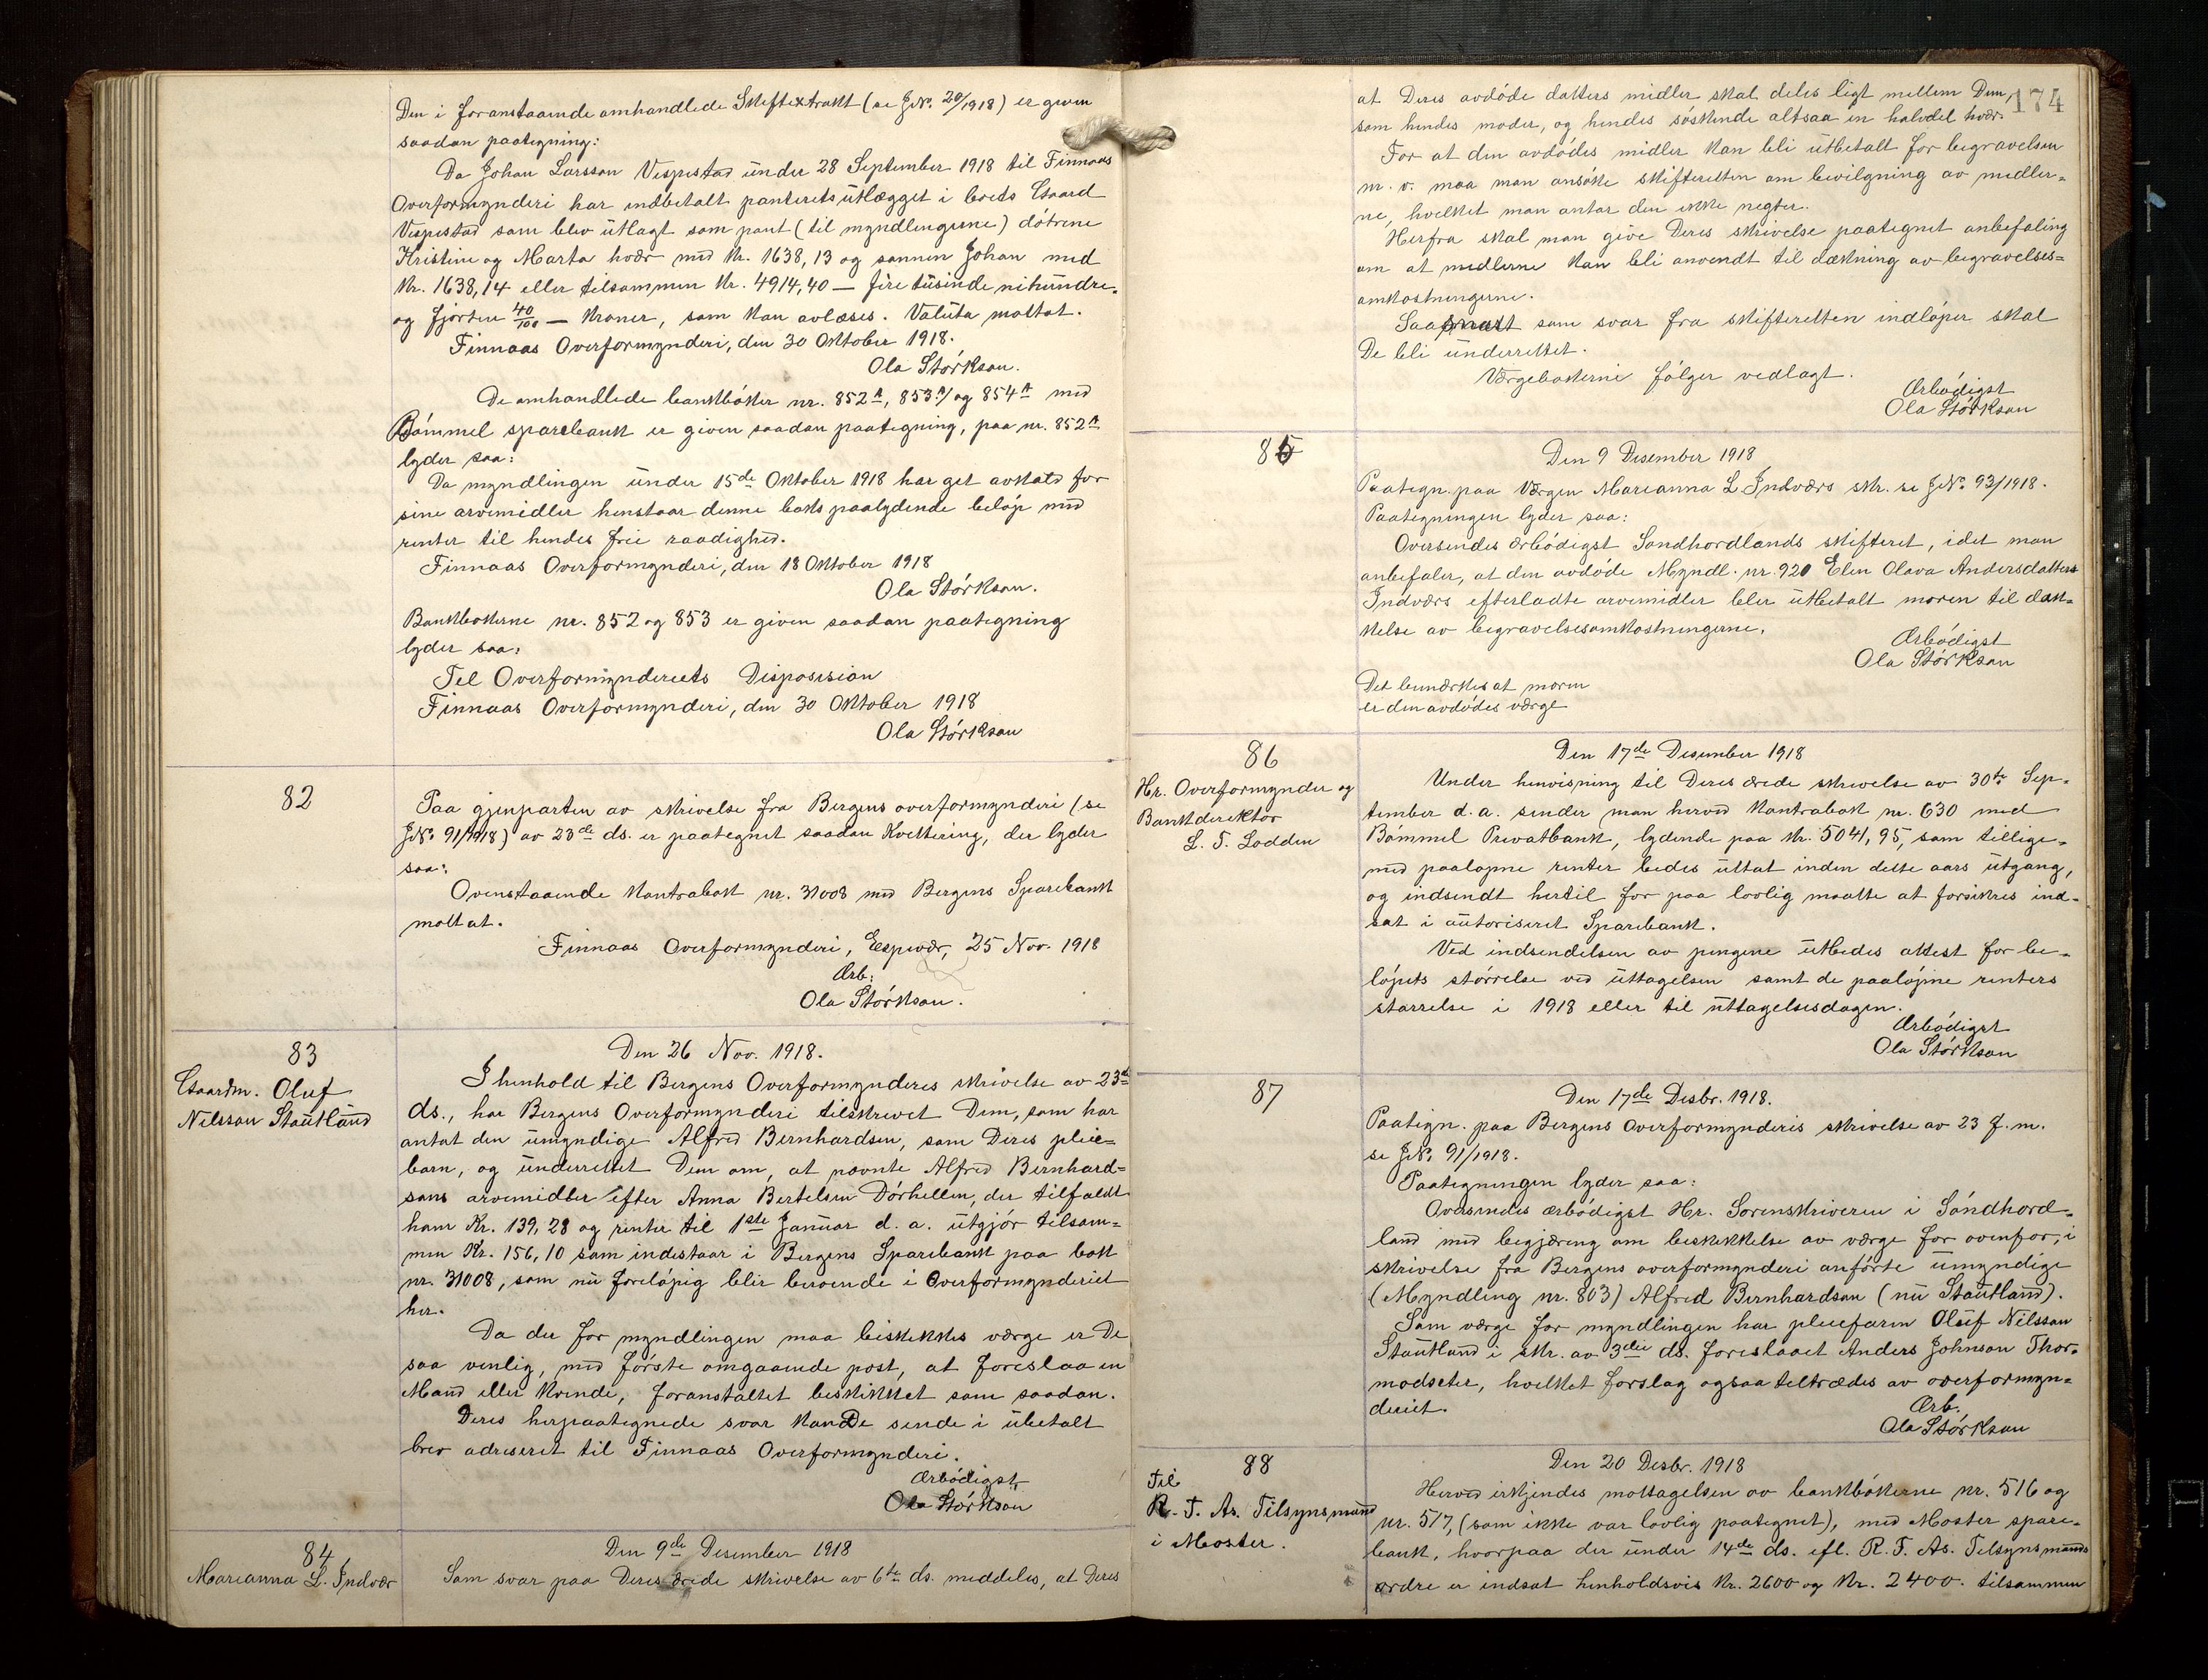 Den i foranstaaende omhandlede Skifteextrakt (se JN° 20/1918) er given
saadan paategning:
Da Johan Larsson Vespestad under 28 September 1918 til Finnaas
Overformynderi har indbetalt panterets utlægget i brets Gaard
Vespestad som blev utlagt som pant (til myndlingerne) døtrene
Kristine og Marta hvær med Kr. 1638,13 og sønnen Johan med
Kr. 1638,14 eller tilsammen Kr. 4914,40 — fire tusinde nihundre
og fjorten 40/100 — Kroner, som kan avlæses. Valuta mottat.
Finnaas Overformynderi, den 30 Oktober 1918.
Ola Størkson.
De omhandlede bankbøker nr. 852 A, 853 A og 854 A med
Bømmel sparebank er given saadan paategning, paa nr. 852 A
lyder saa:
Da myndlingen under 15de Oktober 1918 har get avkald for
sine arvemidler henstaar denne boks paalydende beløp med
renter til hendes frie raadighed.
Finnaas Overformynderi, den 18 Oktober 1918
Ola Størkson.
Bankbokerne nr. 852 og 853 er given saadan paategning
lyder saa:
Til Overformynderiets Disposision
Finnaas Overformynderi, den 30 Oktober 1918
Ola Størkson
82
Paa gjenparten av skrivelse fra Bergens overformynderi (se
JN° 91/1918) av 23de ds. er paategnet saadan Kvittering, der lyder
saa:
Ovenstaaende Kontrabok nr. 31008 med Bergens Sparebank
mottat.
Finnaas Overformynderi, Espevær, 25 Nov. 1918
Ærb:
Ola Størkson.
83
Gaardm. Oluf
Nilsson Stautland
Den 26 Nov. 1918.
I henhold til Bergens Overformynderis skrivelse av 23de
ds., har Bergens Overformynderi tilskrevet Dem, som har
antat den umyndige Alfred Bernhardsen, som Deres pleie=
barn, og underrettet Dem om, at nævnte Alfred Bernhard=
sons arvemidler efter Anna Bertelsen Dørhellen, der tilfaldt
ham Kr. 139,28 og renter til 1ste Januar d. a. utgjør tilsam=
men Kr. 156,10 som indestaar i Bergens Sparebank paa bok
nr. 31008, som nu foreløpig blir beroende i Overformynderiet
her.
Da der for myndlingen maa beskikkes værge er De
saa venlig, med første omgaaende post, at foreslaa en
Mand eller Kvinde, foranstaltet beskikket som saadan.
Deres herpaategnede svar kan De sende i ubetalt
brev adresseret til Finnaas Overformynderi.
Ærbødigst
Ola Størkson
84
Marianna L. Indvær
Den 9de Desember 1918
Som svar paa Deres ærede skrivelse av 6te ds. meddeles, at Deres
174
at Deres avdøde datters midler skal deles ligt mellem Dem,
som hendes moder, og hendes søskende altsaa en halvdel hvær.
For at den avdødes midler kan bli utbetalt for begravelsen
m. v. maa man ansøke skifteretten om bevilgning av midler=
ne, hvilket man antar den ikke negter.
Herfra skal man give Deres skrivelse paategnet anbefaling
om at midlerne kan bli anvendt til dækning av begravelses=
omkostningerne.
Saasnart som svar fra skifteretten indløper skal
De bli underrettet.
Værgebokerne følger vedlagt.
Ærbødigst
Ola Størkson
85
Den 9 Desember 1918
Paategn. paa Værgen Marianna L Indværs skr. se JN° 93/1918.
Paategningen lyder saa:
Oversendes ærbødigst Sondhordlands skifteret, idet man
anbefaler, at den avdøde Myndl. nr. 920 Elen Olava Andersdatters
Indværs efterladte arvemidler bler utbetalt moren til dæk=
kelse av begravelsesomkostningerne.
Ærbødigst
Ola Størkson
Det bemærkes at moren
er den avdødes værge
86
Hr. Overformynder og
Bankdirektør
L. T. Lodden
Den 17de Desember 1918
Under henvisning til Deres ærede skrivelse av 30te Sep=
tember d. a. sender man herved Kontrabok nr. 630 med
Bømmel Privatbank, lydende paa Kr. 5041,95, som tillige=
med paaløpne renter bedes uttat inden dette aars utgang,
og indsendt hertil for paa lovlig maatte at forsikres ind=
sat i autoriseret Sparebank.
Ved indsendelsen av pengene utbedes attest for be=
løpets størrelse ved uttagelsen samt de paaløpne renters
størrelse i 1918 eller til uttagelsesdagen.
Ærbødigst
Ola Størkson
87
Den 17de Desbr. 1918.
Paategn. paa Bergens Overformynderis skrivelse av 23 f. m.
se JN° 91/1918.
Paategningen lyder saa:
Oversendes ærbødigst Hr. Sorenskriveren i Søndhord=
land med begjæring om beskikkelse av værge for ovenfor, i
skrivelse fra Bergens overformynderi anførte umyndige
(Myndling nr. 803) Alfred Bernhardson (nu Stautland).
Som værge for myndlingen har pleiefaren Oluf Nilsson
Stautland i skr. av 3die ds. foreslaaet Anders Johnson Thor=
modseter, hvilket forslag ogsaa tiltrædes av overformyn=
deriet.
Ærb.
Ola Størkson
88
Til
R. T. As. Tilsynsmand
i Moster.
Den 20 Desbr. 1918
Herved erkjendes mottagelsen av bankbøkerne nr. 516 og
nr. 517, (som ikke var lovlig paategnet), med Moster spare=
bank, hvorpaa der under 14de ds. efl. R. T. As. Tilsynsmands
ordre er indsat henholdsvis Kr. 2600 og Kr. 2400. tilsammen